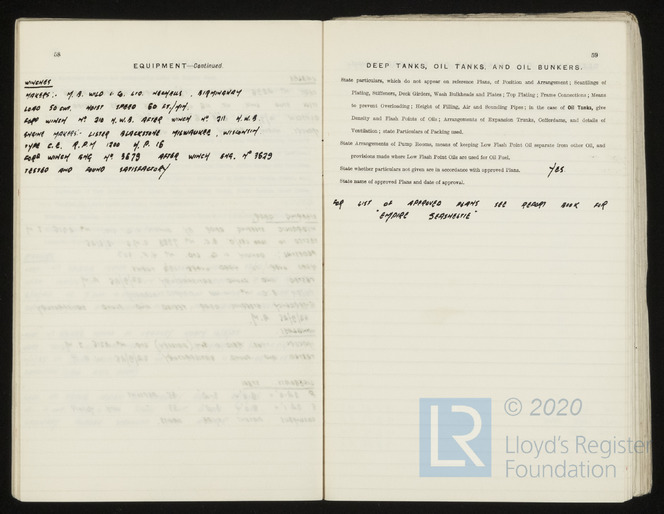 58
EQUIPMENT—Continued.
WINCHES
MAKERS:- M.B. WILD & Co. LTD. NECHELLS, BIRMINGHAM
LOAD 50 CWT. HOIST SPEED 60 FT/MIN.
FORD WINCH No 210 M.W.B. AFTER WINCH No 211 M.W.B.
ENGINE MAKERS:- LISTER BLACKSTONE MILWAUKEE, WISCONSIN
TYPE C.E. R.P.M 1200 H.P. 16
FORD WINCH ENG. No 3679 AFTER WINCH ENG. No 3629
TESTED AND FOUND SATISFACTORY
59
DEEP TANKS, OIL TANKS, AND OIL BUNKERS.
State particulars, which do not appear on reference Plans, of Position and Arrangement; Scantlings of
Plating, Stiffeners, Deck Girders, Wash Bulkheads and Plates; Top Plating; Frame Connections; Means
to prevent Overloading; Height of Filling, Air and Sounding Pipes; in the case of Oil Tanks, give
Density and Flash Points of Oils; Arrangements of Expansion Trunks, Cofferdams, and details of
Ventilation; state Particulars of Packing used.
State Arrangements of Pump Rooms, means of keeping Low Flash Point Oil separate from other Oil, and
provisions made where Low Flash Point Oils are used for Oil Fuel.
State whether particulars not given are in accordance with approved Plans. YES
State name of approved Plans and date of approval.
FOR LIST OF APPROVED PLANS SEE REPORT BOOK FOR
"EMPIRE SEASHELTIE"
© 2020
LR
Lloyd's Register
Foundation